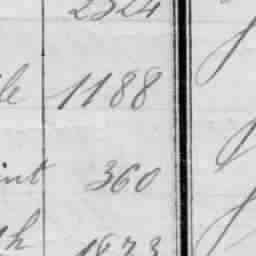 2324
le 1188
int 360
th 1873